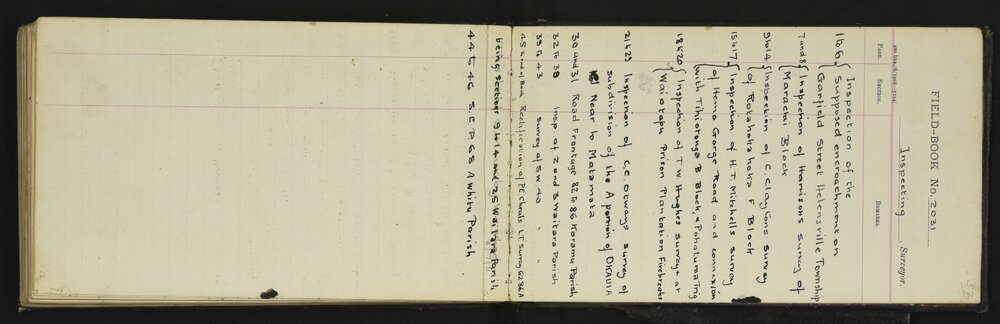 FIELD-BOOK No. 2031
Inspecting, Surveyor.
PAGE. SECTION. REMARKS.
1 to 6 { Inspection of the
Supposed encroachment on
Garfield Street Helensville Township
7 and 8 { Inspection of Harrisons Survey of
Maraetai Block
9 to 14 { Inspection of C. Claytons Survey
of Rotohokahoka F Block
15 to 17 { Inspection of H. T. Mitchells survey
of Hemo Gorge Road and connexion
with Tihiotonga B Block, & Pohaturoa Tng
18 to 20 { Inspection of T. W Hughes surveys at
Waiotapu Prison Plantation Firebreaks
21 to 29 Inspection of C. C. Otways survey of
subdivision of the A portion of OKAUIA
Near to Matamata
30 and 31 Road Frontage 82 to 86 Karamu Parish
32 to 38 Insp of 2 and 3 Waitara Parish
39 to 43 Survey of SW 40 " "
45 & end of Book Rectification of P.E. Cheals L.T. Survey 6286A
being Sections 9 to 14 and 25 Waitara Parish
44 to 46 S.E. P 68 Awhitu Parish